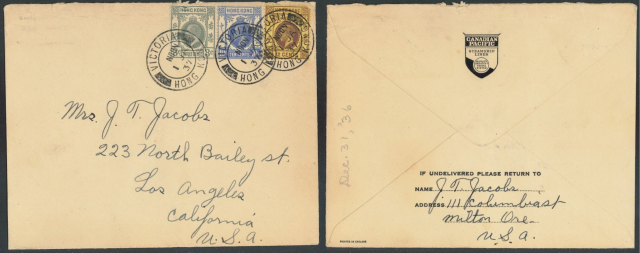 HONG KONG
HONG KONG
VICTORIA
HONG K
VICTORIA
HONG
HONG
Mrs. J. T. Jacobs
223 North Bailey st.
Los Angeles
California
U.S.A.
CANADIAN
PACIFIC
STEAMSHIP
LINES
Dec. 31, '36
IF UNDELIVERED PLEASE RETURN TO
NAME J. T. Jacobs
ADDRESS 111 Columbia st
Milton Ore.
U.S.A.